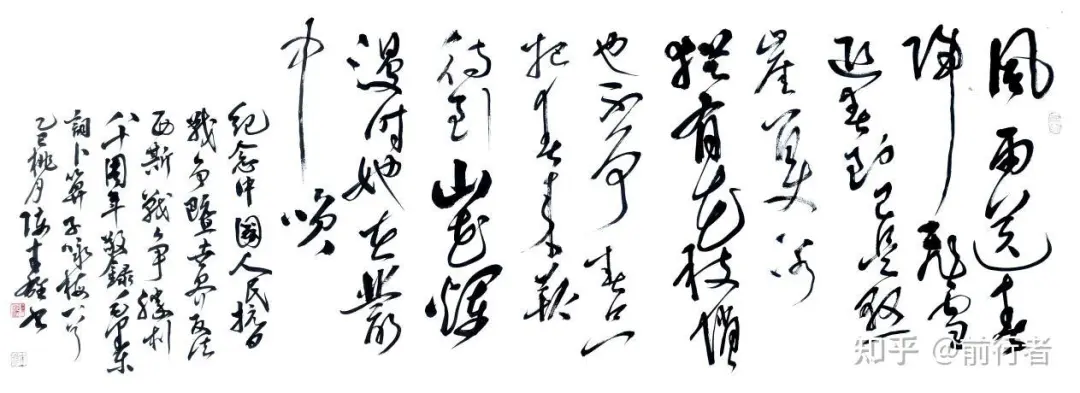 風雨送春
歸飛雪
迎春到已是懸
崖百丈冰
猶有花枝俏
也不争春只
把春来報
待到山花爛
漫时她在叢
中笑
紀念中國人民抗日
戰争暨世界反法
西斯戰争勝利
八十周年敬録毛澤東
詞卜算子咏梅一首
乙巳桃月
知乎 @前行者